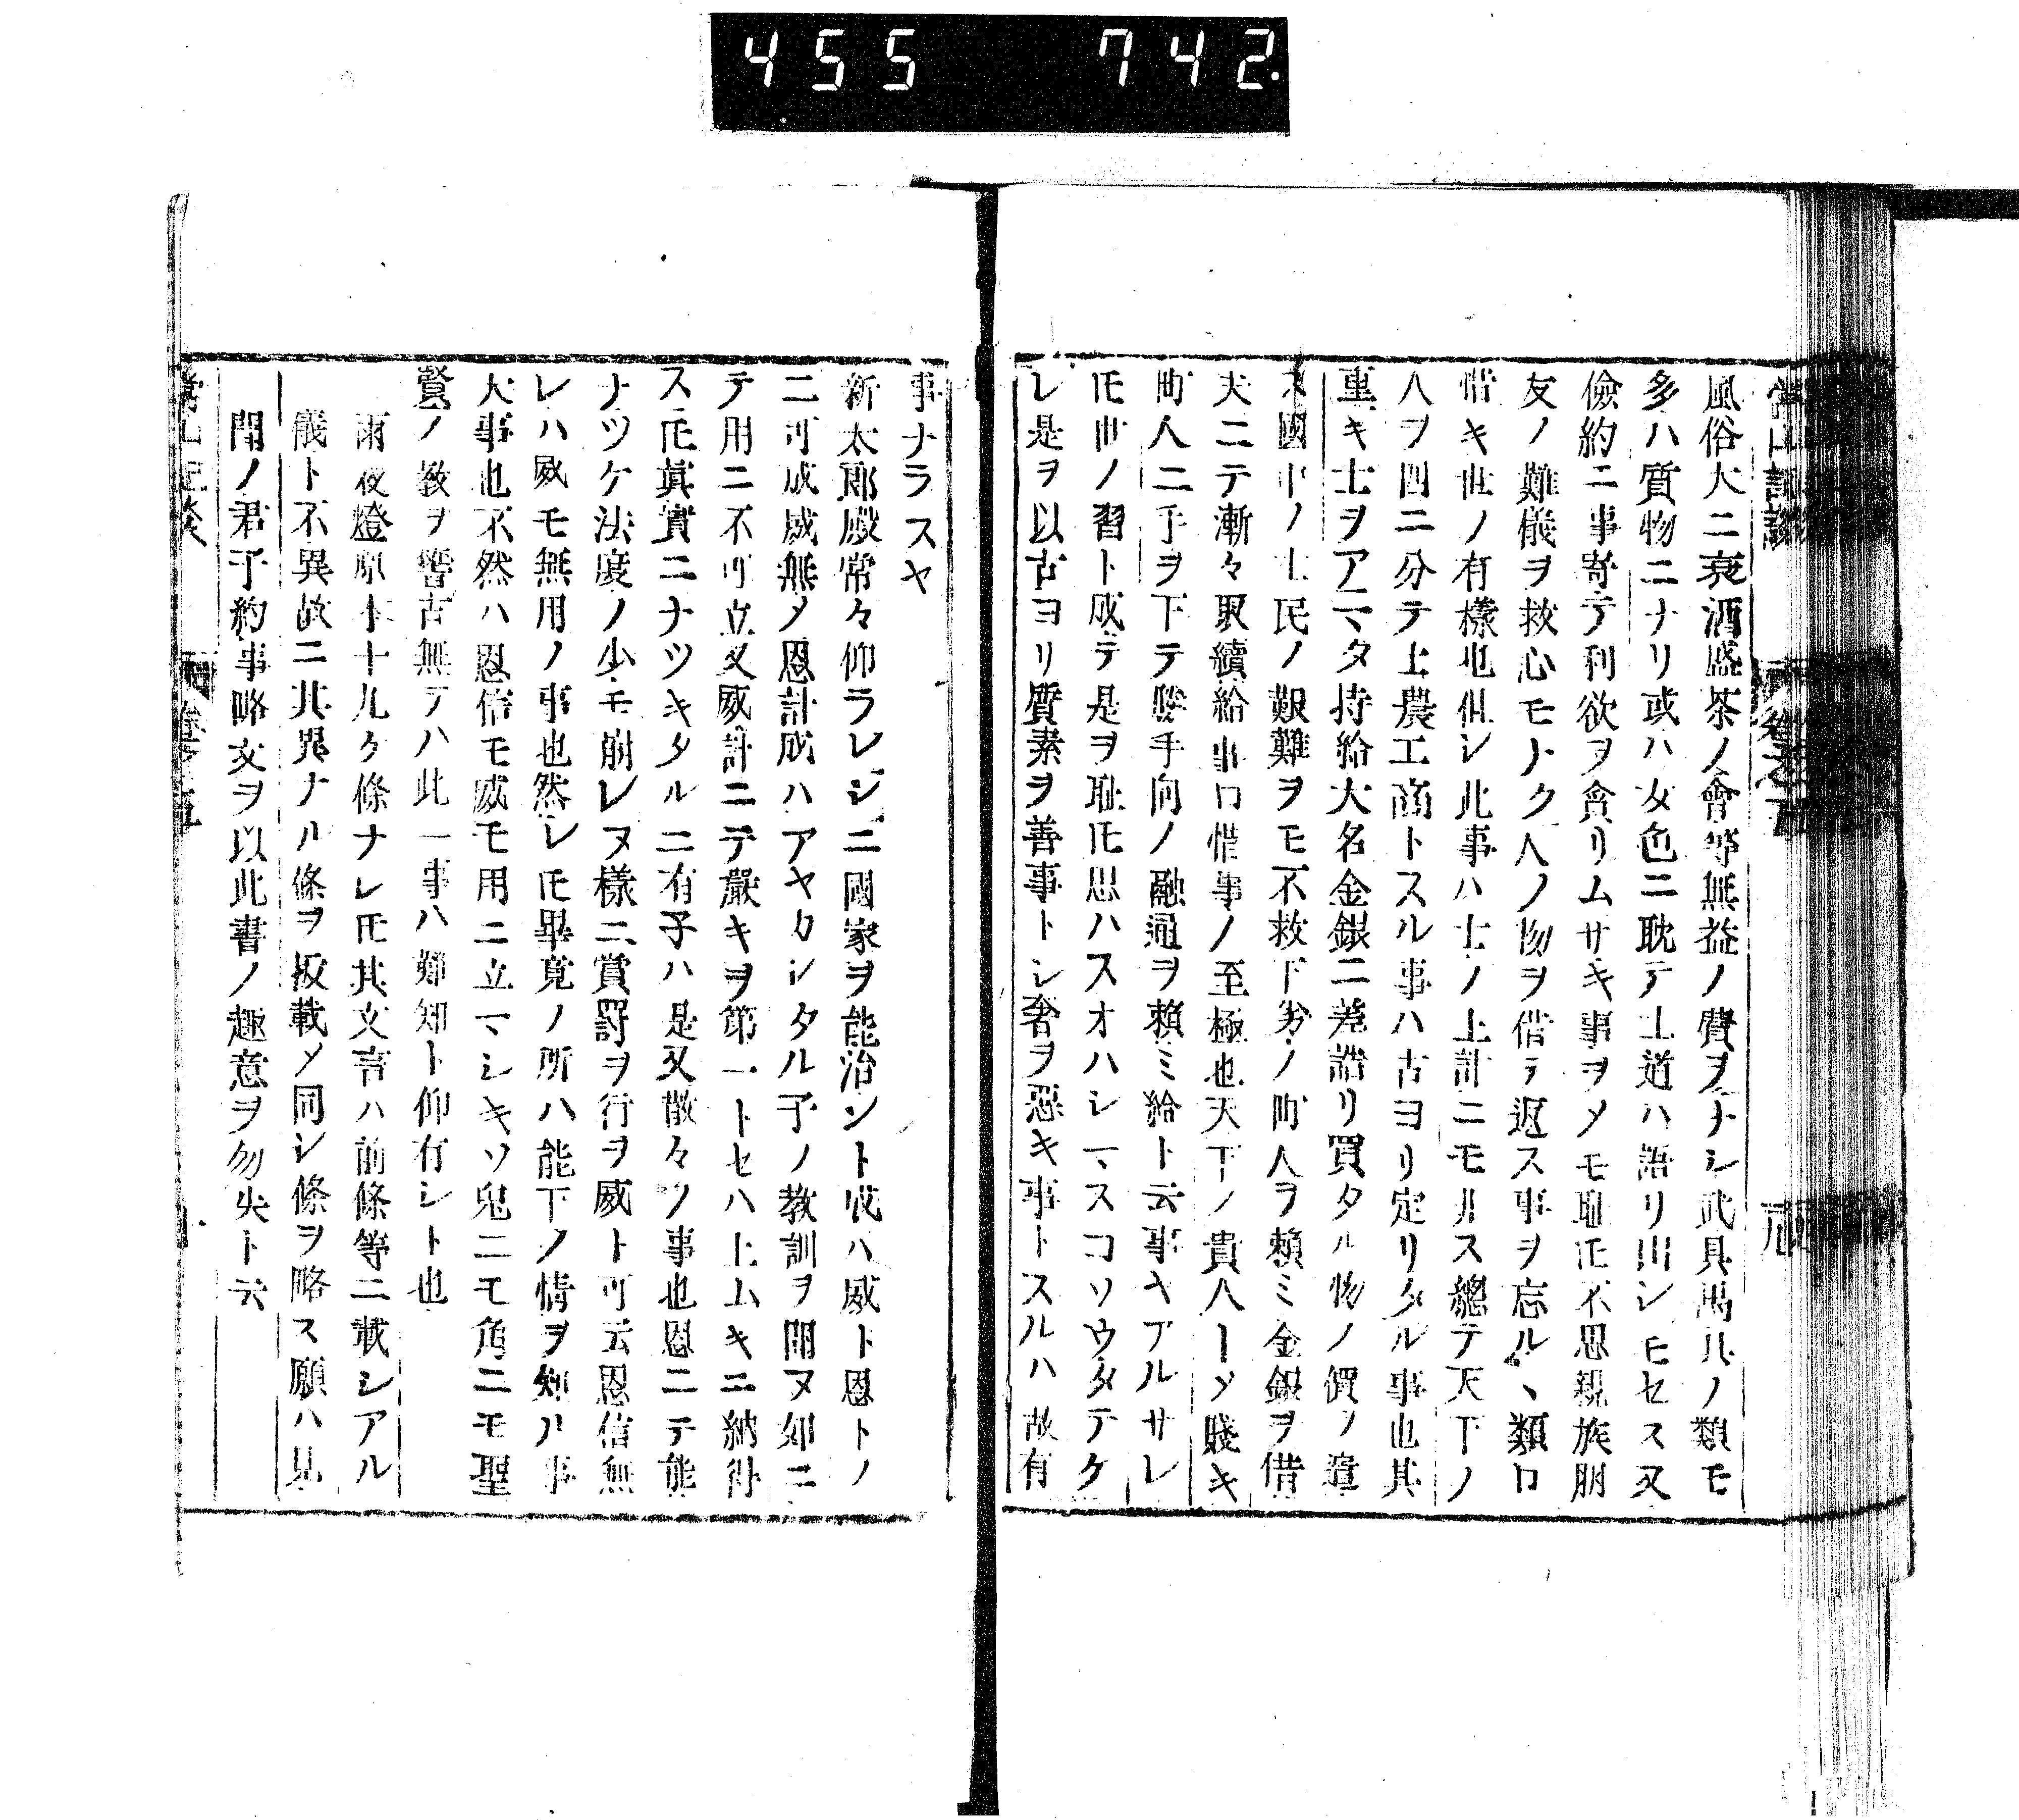 455 742.
風俗大ニ衰酒盛茶ノ會等無益ノ費ヲナシ武具馬具ノ類モ
多ハ質物ニナリ或ハ女色ニ耽テ士道ハ語リ出シモセス又
儉約ニ事寄テ利欲ヲ貪リムサキ事ヲメモ耻𪜈不思親族朋
友ノ難儀ヲ救心モナク人ノ物ヲ借テ返ス事ヲ忘ルヽ類口
惜キ世ノ有樣也但シ此事ハ士ノ上計ニモ非ス總テ天下ノ
人ヲ四ニ分テ士農工商トスル事ハ古ヨリ定リタル事也其
重キ士ヲアマタ持給大名金銀ニ差誥リ買タル物ノ價ヲ遣
ス國中ノ士民ノ艱難ヲモ不救下劣ノ町人ヲ頼ミ金銀ヲ借
夫ニテ漸々取續給事口惜事ノ至極也天下ノ貴人トメ賤キ
町人ニ手ヲ下テ勝手向ノ融通ヲ頼ミ給ト云事ヤアルサレ
𪜈世ノ習ト成テ是ヲ耻𪜈思ハスオハシマスコソウタテケ
レ是ヲ以古ヨリ質素ヲ善事トシ奢ヲ惡キ事トスルハ故有
事ナラスヤ
新太郎殿常々仰ラレシニ國家ヲ能治ント成ハ威ト恩トノ
二可成威無メ恩計成ハアヤカシタル子ノ教訓ヲ聞ヌ如ニ
テ用ニ不可立又威計ニテ嚴キヲ第一トセハ上ムキニ納得
ス𪜈眞實ニナツキタルニ有子ハ是又散々ノ事也恩ニテ能
ナツケ法度ノ少モ崩レヌ樣ニ賞罸ヲ行ヲ威ト可云恩信無
レハ威モ無用ノ事也然レ𪜈畢竟ノ所ハ能下ノ情ヲ知ル事
大事也不然ハ恩信モ威モ用ニ立マシキソ兎ニモ角ニモ聖
賢ノ教ヲ響古無テハ此一事ハ難知ト仰有シト也
雨夜燈原本十九ケ條ナレ𪜈其文言ハ前條等ニ載シアル
儀ト不異故ニ其異ナル條ヲ扱載メ同シ條ヲ略ス願ハ見
聞ノ君子約事略文ヲ以此書ノ趣意ヲ勿失ト云